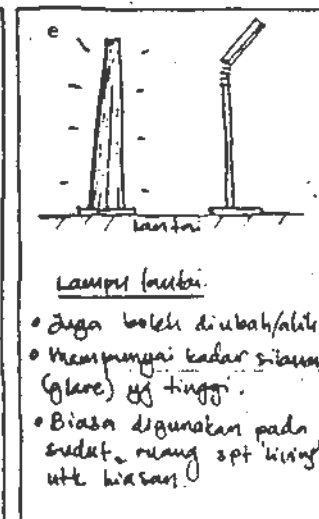 e
Lantai
Lampu lantai.
• Juga boleh diubah/alih
• Mempunyai kadar silauan
(glare) yg tinggi.
• Biasa digunakan pada
sudut ruang spt living
utk hiasan.